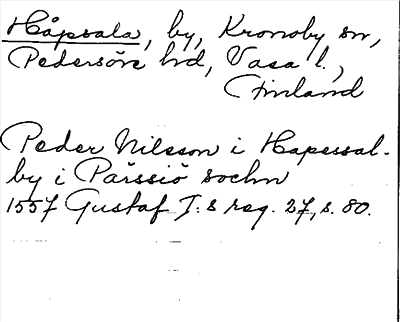 Håpsala, by, Kronoby sn,
Pedersöre hd, Vasa l.,
Finland
Peder Nilsson i Hapessal-
by i Pärssiö sochn
1557 Gustaf I:s reg. 27, s. 80.